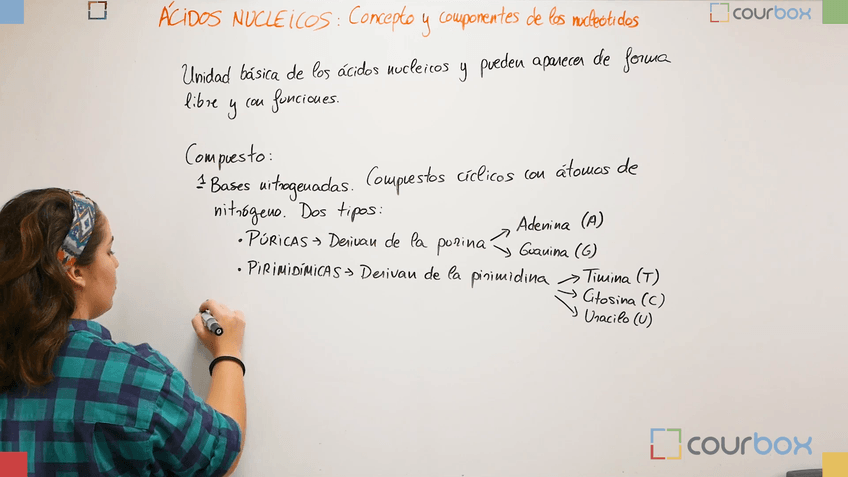 ÁCIDOS NUCLEICOS: Concepto y componentes de los nucleótidos
courbox
Unidad básica de los ácidos nucleicos y pueden aparecer de forma
libre y con funciones.
Compuesto:
1 Bases nitrogenadas. Compuestos cíclicos con átomos de
nitrógeno. Dos tipos:
• PÚRICAS → Derivan de la purina → Adenina (A)
→ Guanina (G)
• PIRIMIDÍMICAS → Derivan de la pirimidina → Timina (T)
→ Citosina (C)
→ Uracilo (U)
courbox